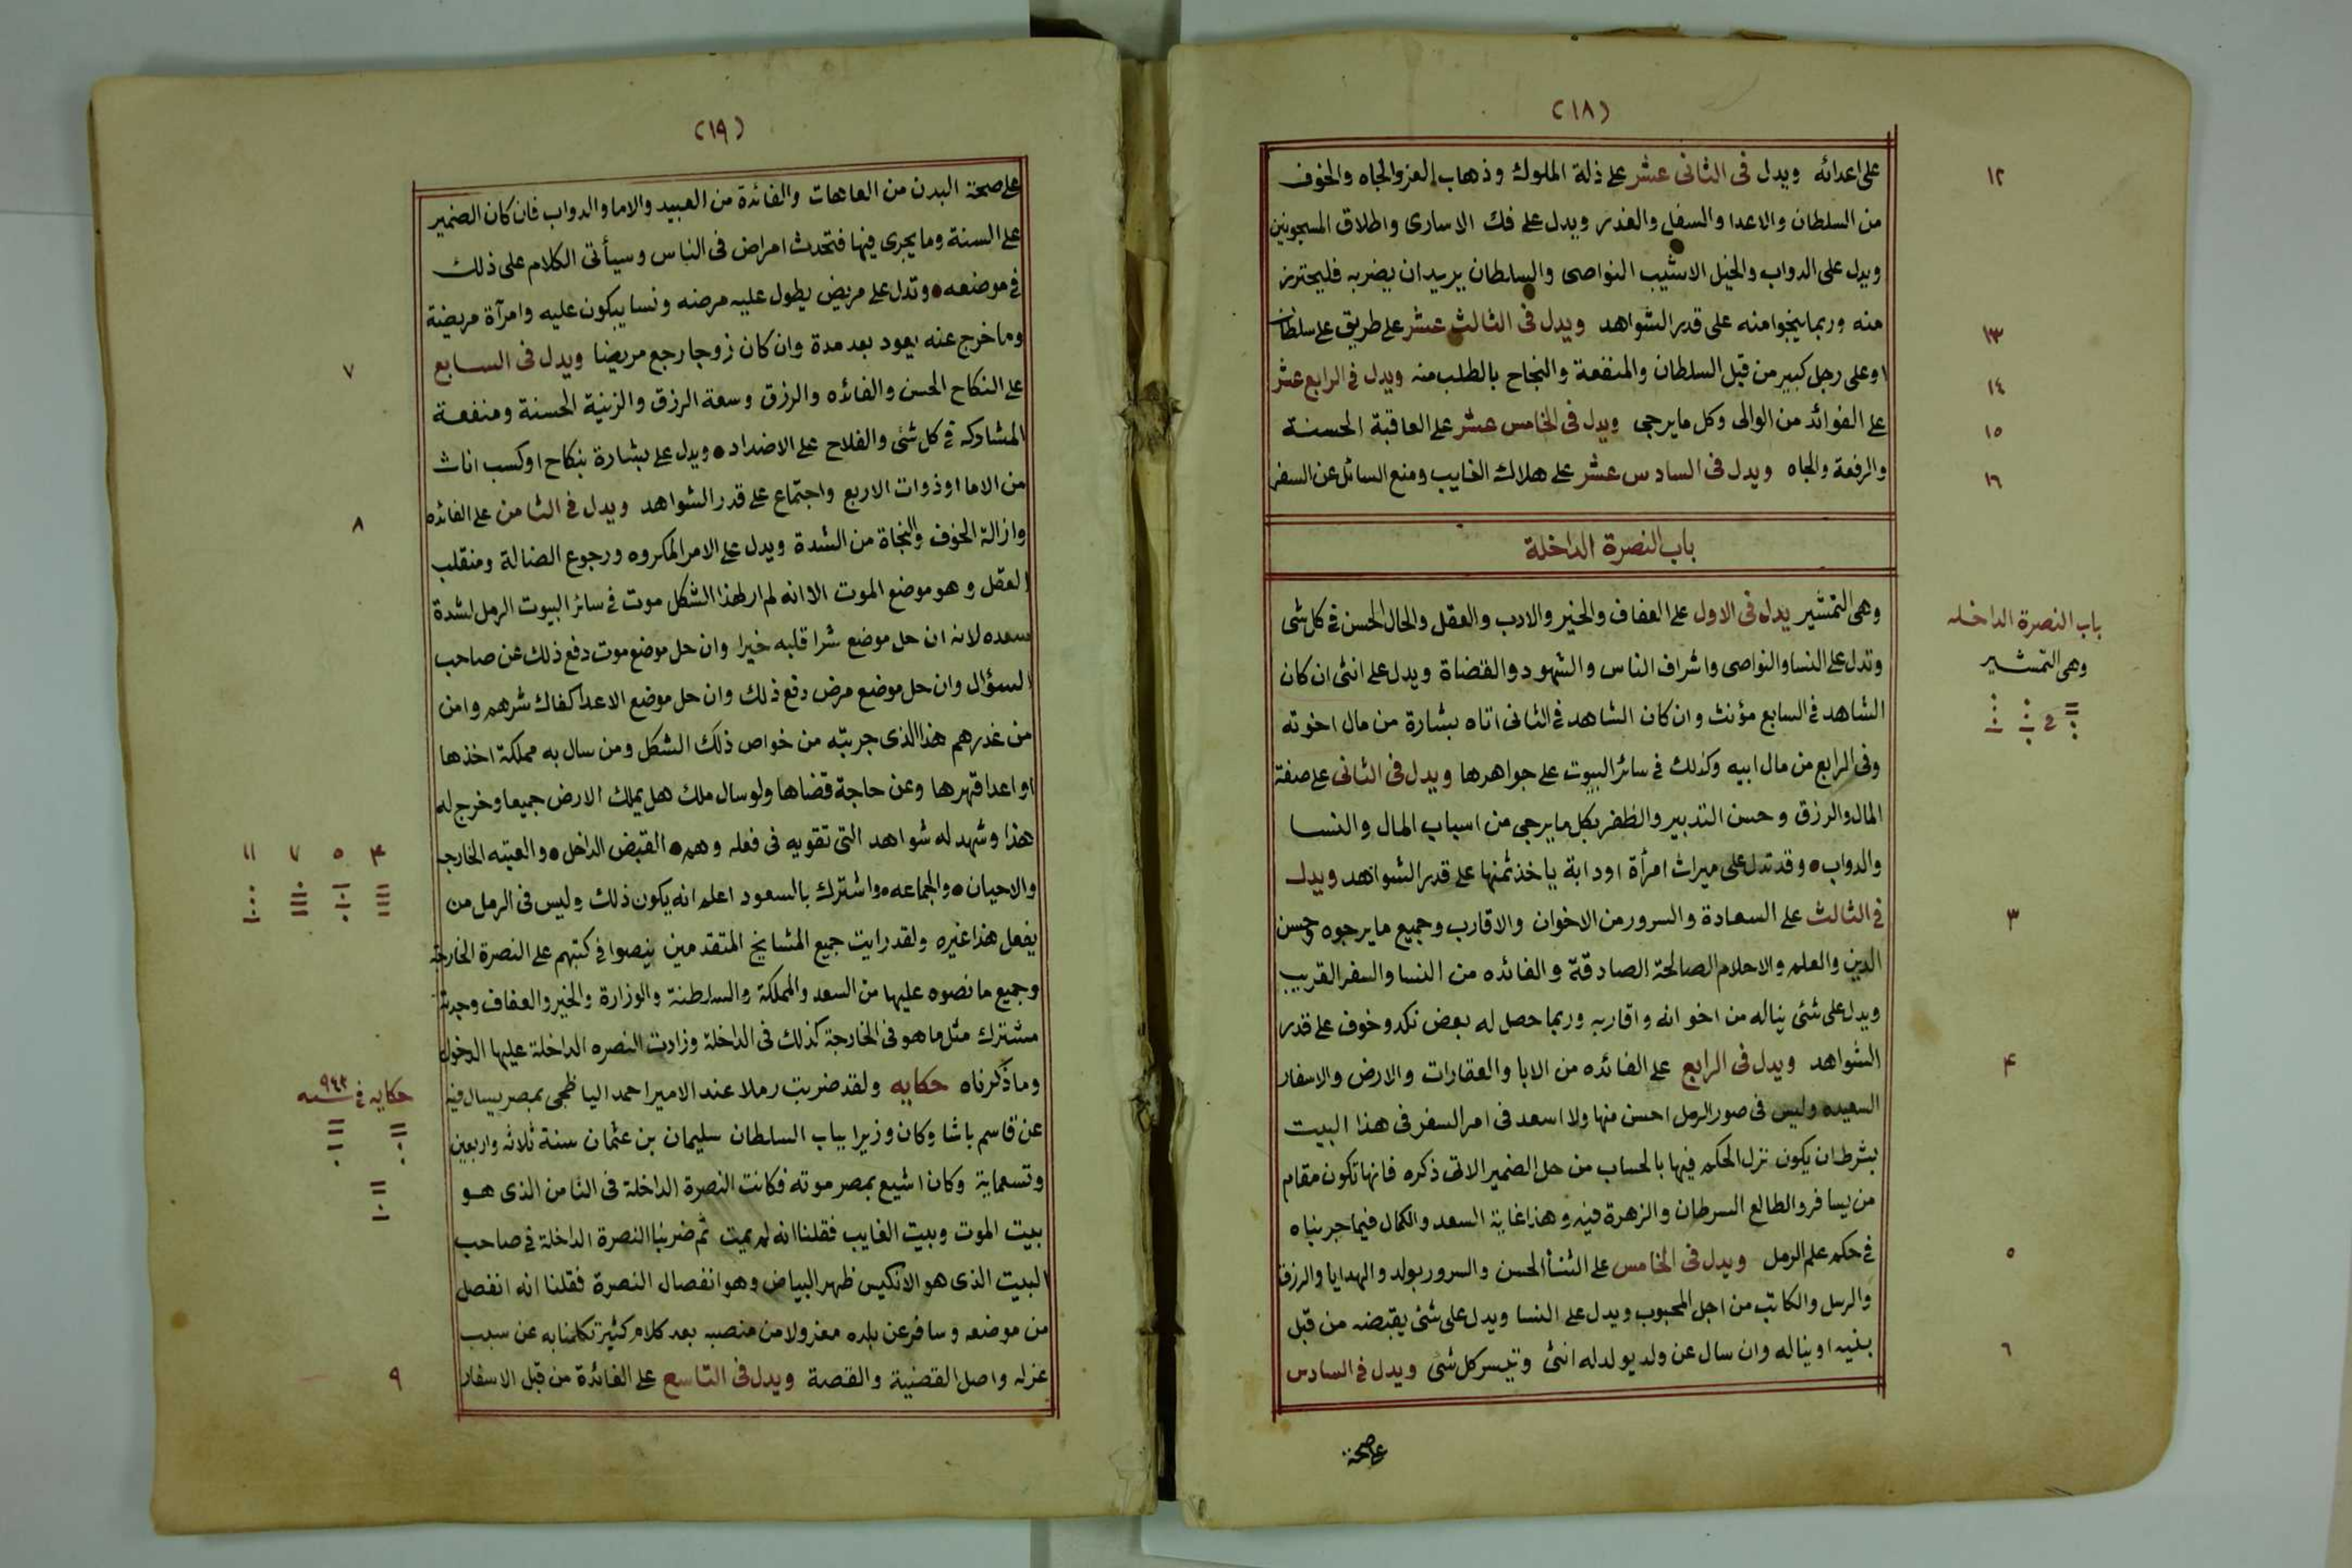 (١٨)
على اعدائه ويدل فى الثانى عشر على ذلة الملوك وذهاب العز والجاه والخوف
١٢
من السلطان والاعدا والسفل والغدر ويدل على فك الاسارى واطلاق المسجونين
ويدل على الدواب والخيل الاشيب النواصى والسلطان يريد ان يضربه فليحترز
منه وربما ينجوا منه على قدر الشواهد ويدل فى الثالث عشر على طريق على سلطان
١٣
او على رجل كبير من قبل السلطان والمنفعة والنجاح بالطلب منه ويدل فى الرابع عشر
١٤
على الفوائد من الوالى وكل ما يرجى ويدل فى الخامس عشر على العاقبة الحسنة
١٥
والرفعة والجاه ويدل فى السادس عشر على هلاك الغايب ومنع السائل عن السفر
١٦
باب النصرة الداخلة
وهى التمشير يدل فى الاول على العفاف والخير والادب والعقل والحال الحسن فى كل شى
باب النصرة الداخله
وتدل على النسا والنواصى واشراف الناس والشهود والقضاة ويدل على انثى ان كان
وهى التمشير
الشاهد فى السابع مؤنث وان كان الشاهد فى الثانى اتاه بشارة من مال اخوته
وفى الرابع من مال ابيه وكذلك فى سائر البيوت على جواهرها ويدل فى الثانى على صفة
المال والرزق وحسن التدبير والظفر بكل ما يرجى من اسباب المال والنسا
والدواب • وقد تدل على ميراث امرأة او دابة ياخذ ثمنها على قدر الشواهد ويدل
فى الثالث على السعادة والسرور من الاخوان والاقارب وجميع ما يرجوه وحسن
٣
الدين والعلم والاحلام الصالحة الصادقة والفائده من النسا والسفر القريب
ويدل على شئى يناله من اخوانه واقاربه وربما حصل له بعض نكد وخوف على قدر
الشواهد ويدل فى الرابع على الفائده من الابا والعقارات والارض والاسفار
۴
السعيده وليس فى صور الرمل احسن منها ولا اسعد فى امر السفر فى هذا البيت
بشرط ان يكون نزل الحكم فيها بالحساب من حل الضمير الاتى ذكره فانها تكون مقام
من يسافر والطالع السرطان والزهرة فيه وهذا غاية السعد والكمال فيما جربناه
فى حكم علم الرمل ويدل فى الخامس على الثنأ الحسن والسرور بولد والهدايا والرزق
٥
والرسل والكاتب من اجل المحبوب ويدل على النسا ويدل على شئى يقبضه من قبل
بنيه او يناله وان سال عن ولد يولد له انثى وتيسر كل شئى ويدل فى السادس
٦
على صحة
(١٩)
على صحة البدن من العاهات والفائدة من العبيد والاما والدواب فان كان الضمير
على السنة وما يجرى فيها فتحدث امراض فى الناس وسيأتى الكلام على ذلك
فى موضعه • وتدل على مريض يطول عليه مرضه ونسا يبكون عليه وامرآة مريضة
وما خرج عنه يعود بعد مدة وان كان زوجا رجع مريضا ويدل فى السابع
٧
على النكاح الحسن والفائده والرزق وسعة الرزق والزينة الحسنة ومنفعة
المشاركه فى كل شئى والفلاح على الاضداد • ويدل على بشارة بنكاح او كسب اناث
من الاما او ذوات الاربع واجتماع على قدر الشواهد ويدل فى الثامن على الفائده
٨
وازالة الخوف والنجاة من الشدة ويدل على الامر المكروه ورجوع الضالة ومنقلب
العقل وهو موضع الموت الا انه لم ار لهذا الشكل موت فى سائر البيوت الرمل لشدة
سعده لانه ان حل موضع شرا قلبه خيرا وان حل موضع موت دفع ذلك عن صاحب
السؤال وان حل موضع مرض دفع ذلك وان حل موضع الاعدا كفاك شرهم وامن
من غدرهم هذا الذى جربته من خواص ذلك الشكل ومن سال به مملكة اخذها
او اعدا قهرها وعن حاجة قضاها ولو سال ملك هل يملك الارض جميعا وخرج له
هذا وشهد له شواهد التى تقويه فى فعله وهم • القبض الداخل • والعتبه الخارجه
۴ ٥ ٧ ١١
والاحيان • والجماعه • واشترك بالسعود اعلم انه يكون ذلك وليس فى الرمل من
يفعل هذا غيره ولقد رايت جميع المشايخ المتقدمين ينصوا فى كتبهم على النصرة الخارجة
وجميع ما نصوه عليها من السعد والمملكة والسلطنة والوزارة والخير والعفاف وجدته
مشترك مثل ما هو فى الخارجة كذلك فى الداخلة وزادت النصره الداخلة عليها الدخول
وما ذكرناه حكايه ولقد ضربت رملا عند الامير احمد اليا ظجى بمصر يسال فيه
حكايه فى سنه ٩٤٣
عن قاسم باشا وكان وزيرا بباب السلطان سليمان بن عثمان سنة ثلاثه واربعين
وتسعماية وكان اشيع بمصر موته فكانت النصرة الداخلة فى الثامن الذى هو
بيت الموت وبيت الغايب فقلنا انه لم يمت ثم ضربنا النصرة الداخلة فى صاحب
البيت الذى هو الانكيس ظهر البياض وهو انفصال النصرة فقلنا انه انفصل
من موضعه وسافر عن بلده معزولا من منصبه بعد كلام كثير تكلمنا به عن سبب
عزله واصل القضية والقصة ويدل فى التاسع على الفائدة من قبل الاسفار
٩